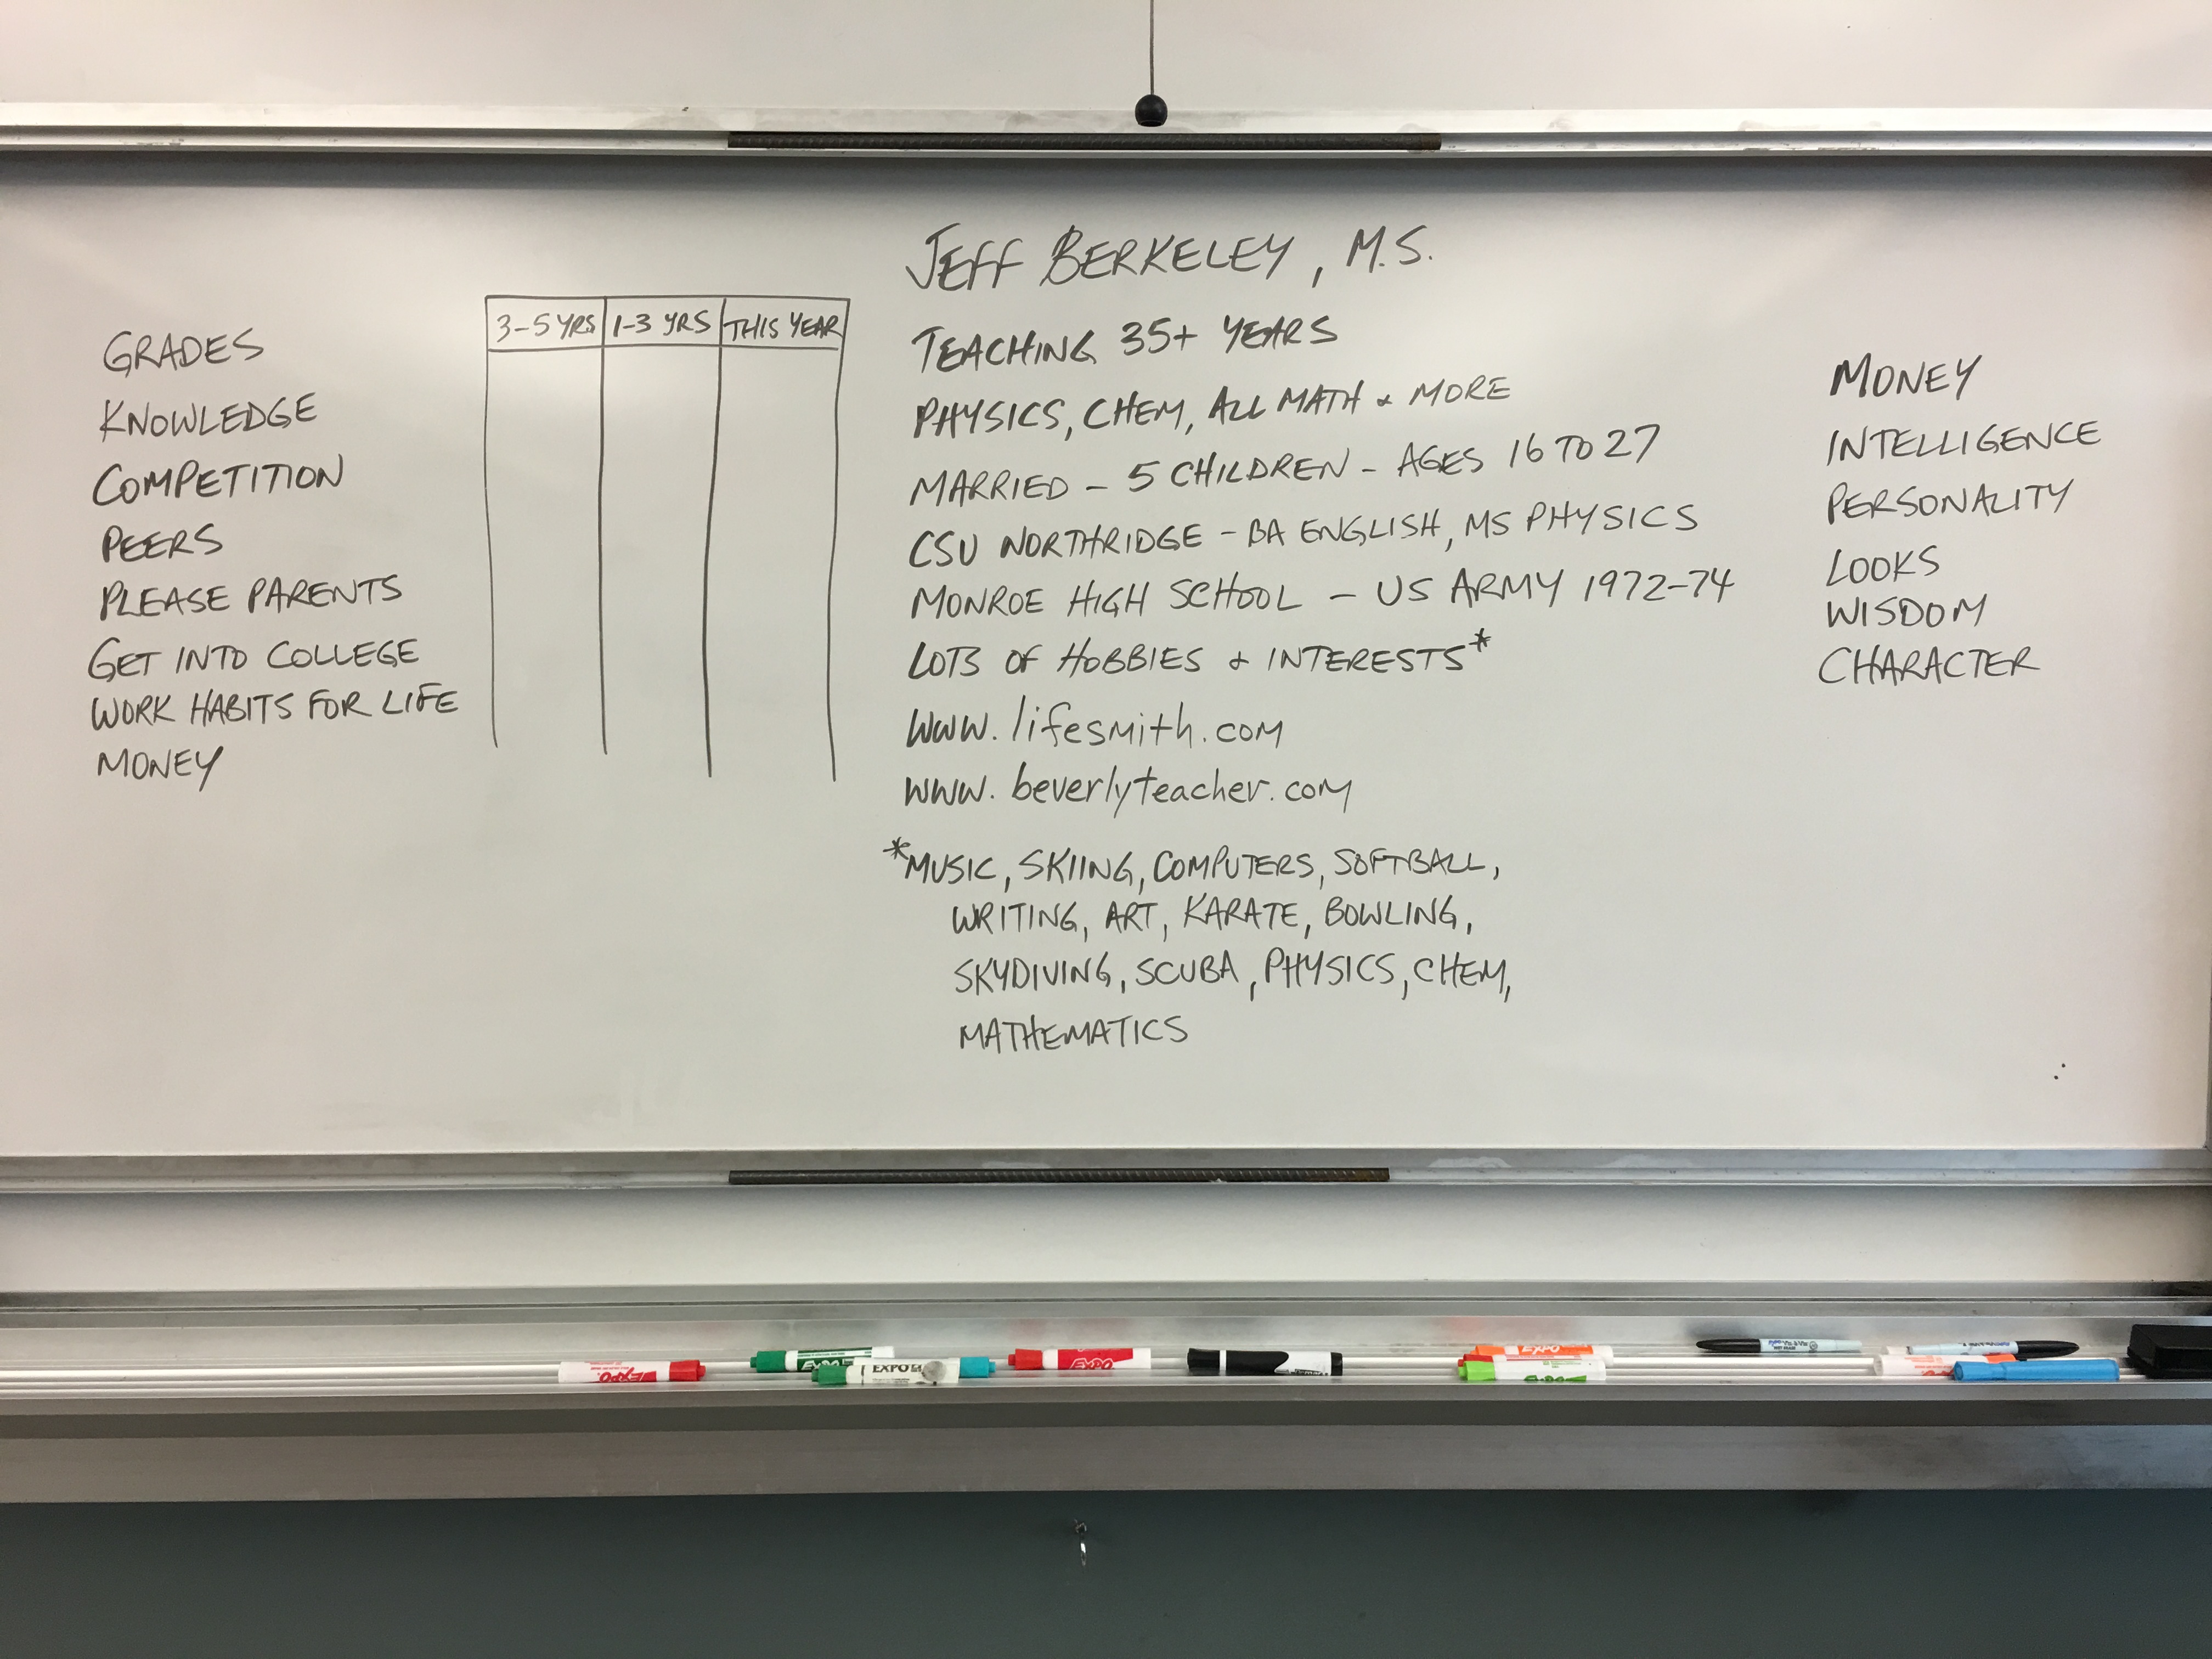 GRADES
KNOWLEDGE
COMPETITION
PEERS
PLEASE PARENTS
GET INTO COLLEGE
WORK HABITS FOR LIFE
MONEY
3-5 YRS 1-3 YRS THIS YEAR
JEFF BERKELEY, M.S.
TEACHING 35+ YEARS
PHYSICS, CHEM, ALL MATH & MORE
MARRIED - 5 CHILDREN - AGES 16 TO 27
CSU NORTHRIDGE - BA ENGLISH, MS PHYSICS
MONROE HIGH SCHOOL - US ARMY 1972-74
LOTS OF HOBBIES & INTERESTS*
www.lifesmith.com
www.beverlyteacher.com
*MUSIC, SKIING, COMPUTERS, SOFTBALL,
WRITING, ART, KARATE, BOWLING,
SKYDIVING, SCUBA, PHYSICS, CHEM,
MATHEMATICS
MONEY
INTELLIGENCE
PERSONALITY
LOOKS
WISDOM
CHARACTER
EXPO
EXPO
EXPO
EXPO
EXPO
EXPO